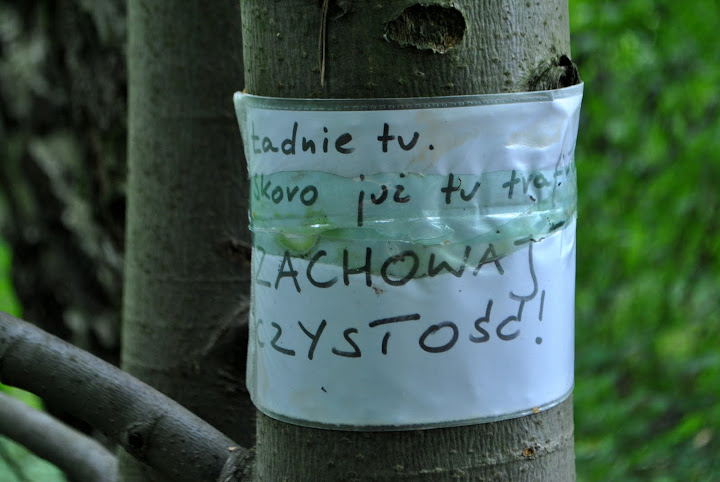 Ładnie tu.
Skoro już tu
ZACHOWAJ
CZYSTOŚĆ!